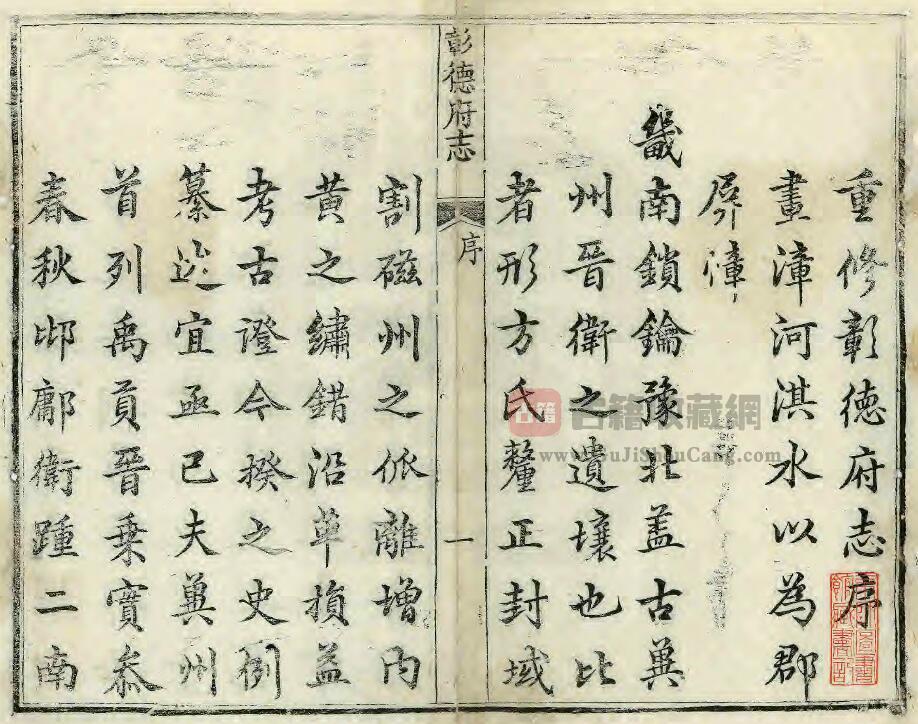 重修彰德府志序
畫漳河淇水以為郡
屏漳
畿南鎖鑰豫北盖古冀
州晉衛之遺壤也比
者形方氏釐正封域
彰德府志
序
一
割磁州之仳離增內
黄之繡錯沿革損益
考古證今揆之史例
纂述宜亟已夫冀州
首列禹貢晉乗實叅
春秋邶鄘衛踵二南
古籍 古籍收藏網
www.GuJiShouCang.com